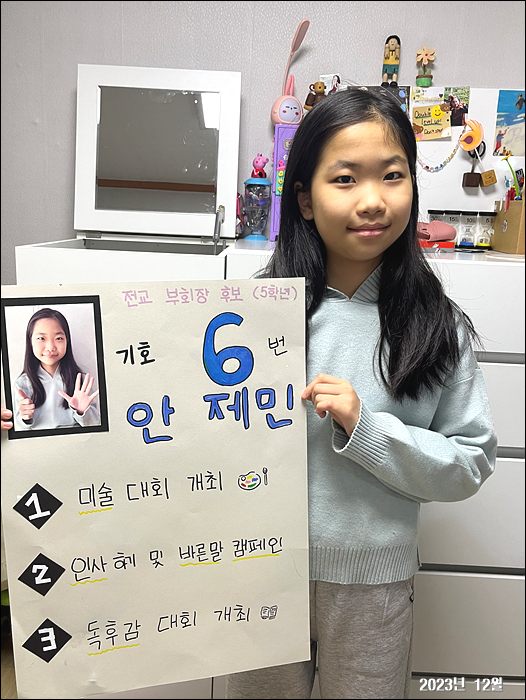 전교 부회장 후보 (5학년)
기호 6 번
안 제민
1 미술 대회 개최
2 인사 하기 및 바른말 캠페인
3 독후감 대회 개최
2023년 12월